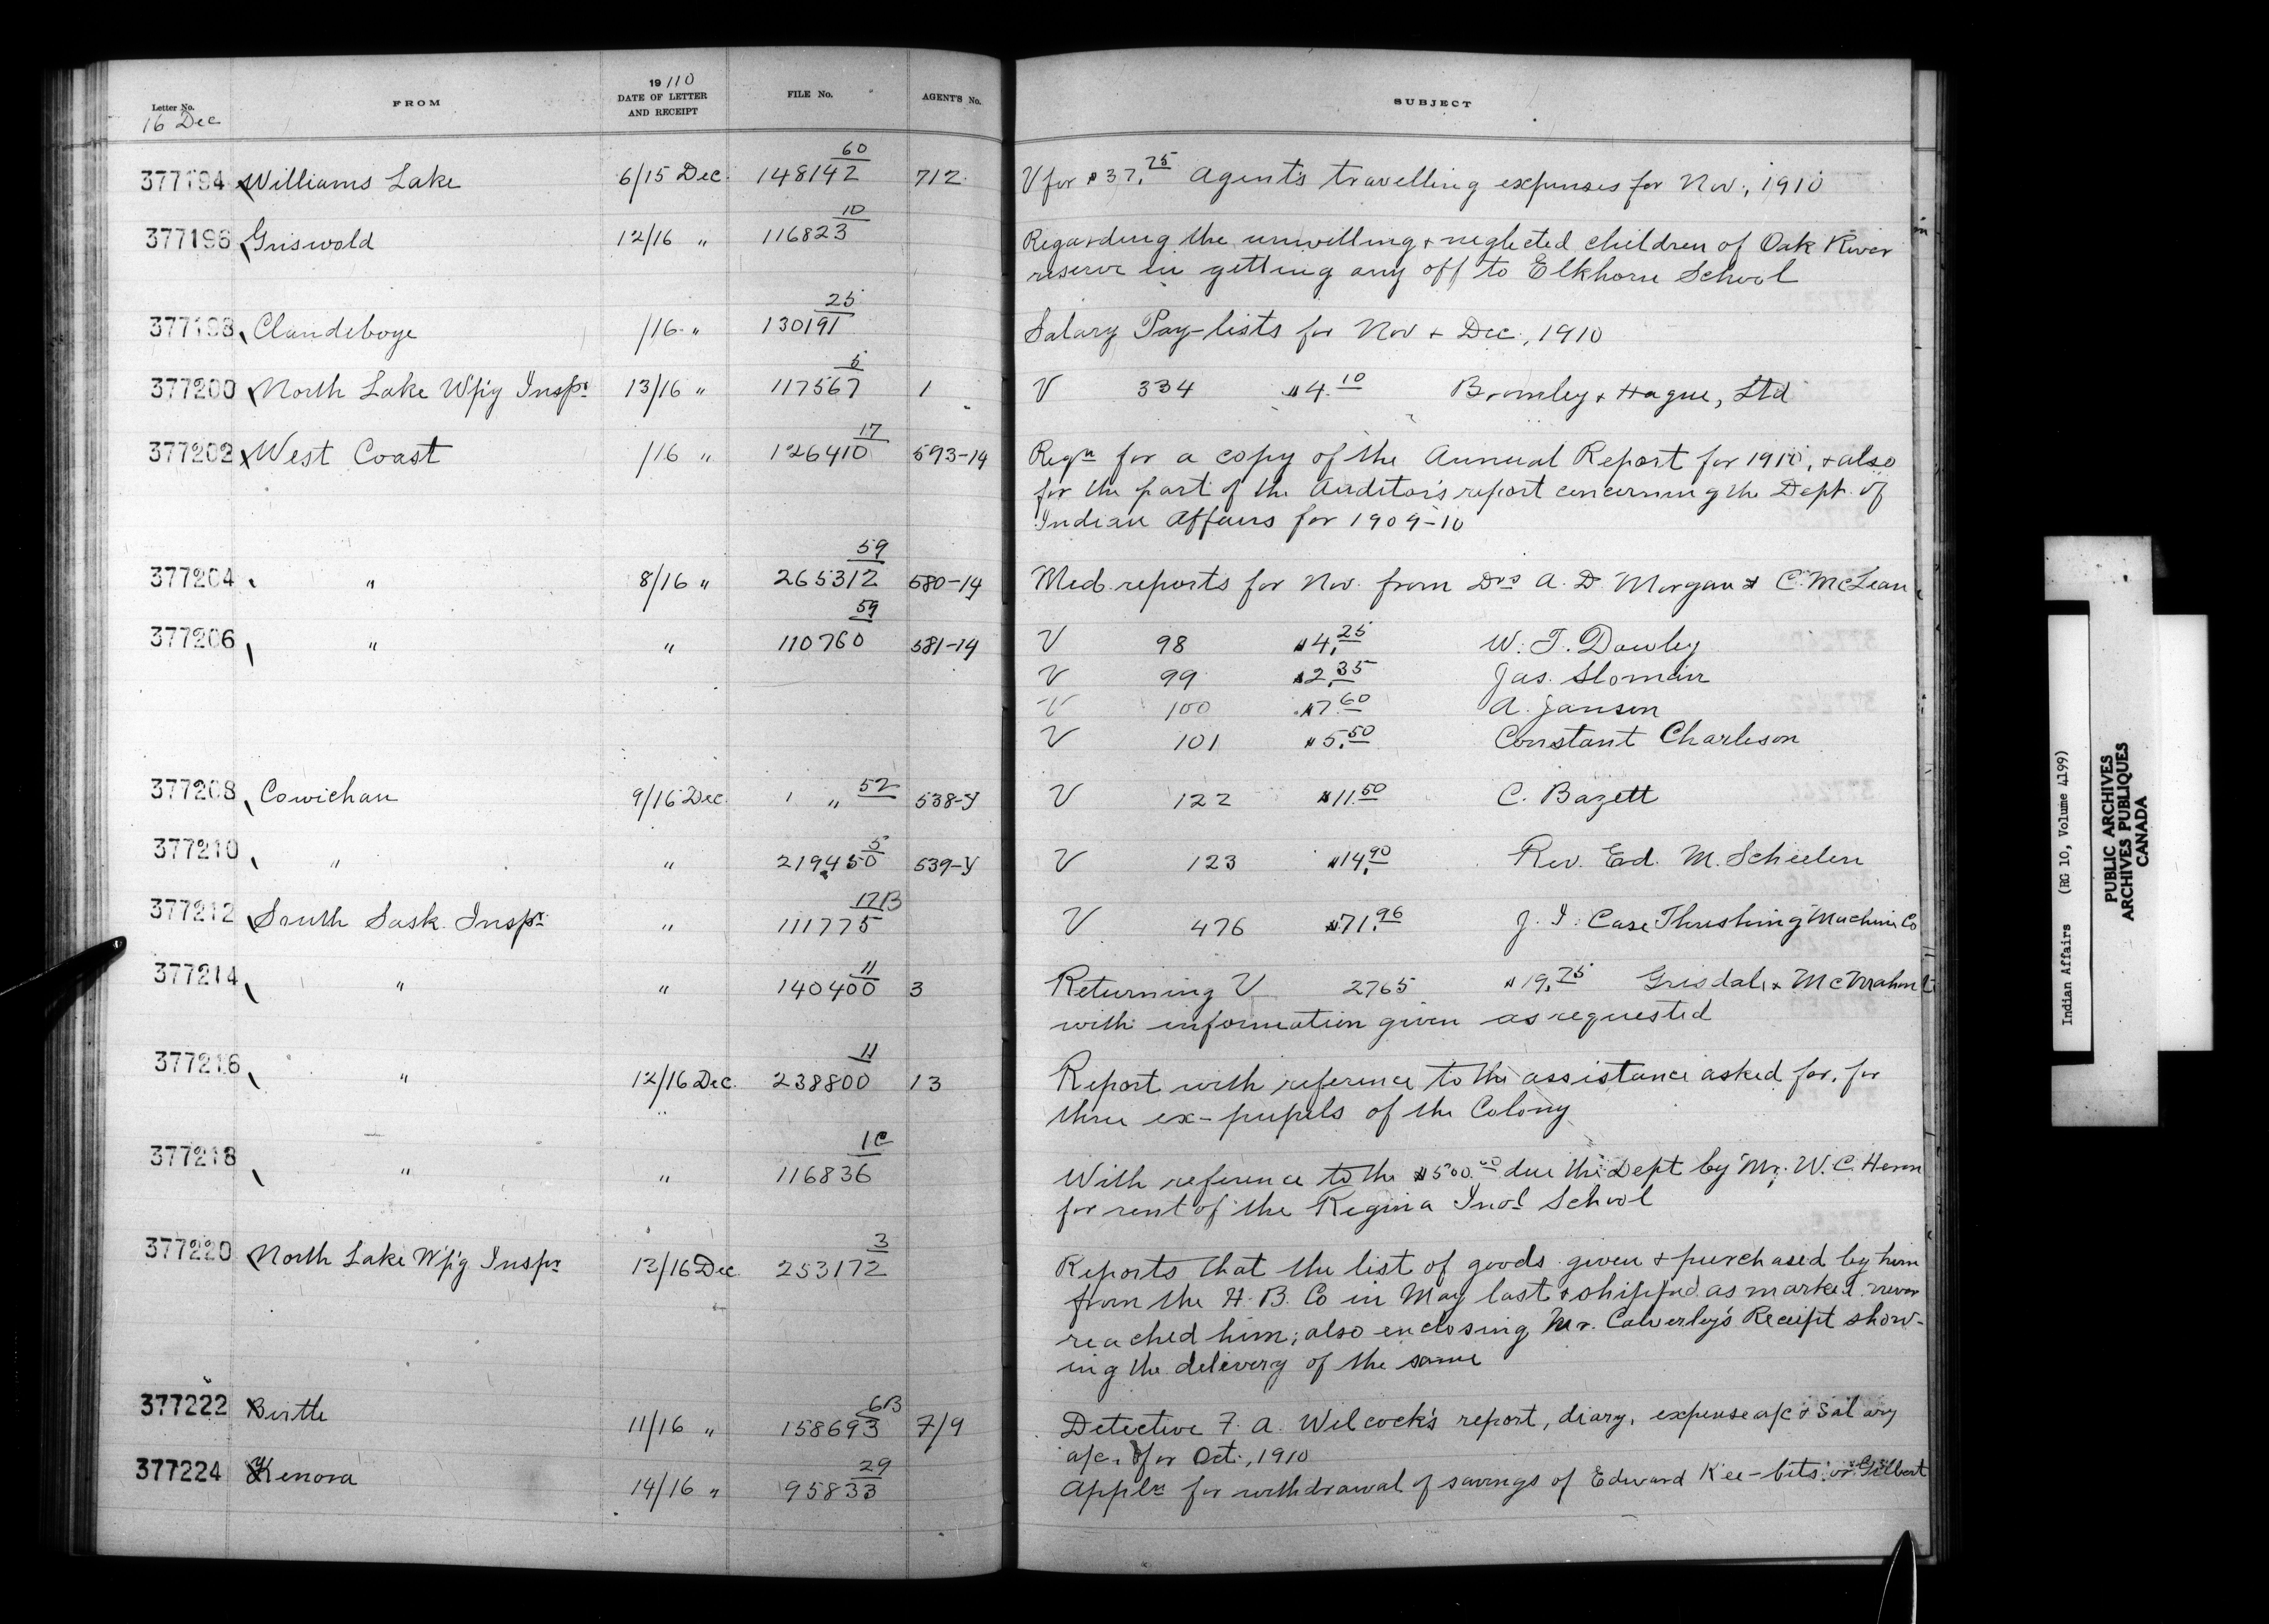 Letter No.
16 Dec
FROM
19/10
DATE OF LETTER
AND RECEIPT
FILE No.
AGENT'S No.
SUBJECT
377194 Williams Lake 6/15 Dec. 148142 60 712 V for $37.75 Agent's travelling expenses for Nov., 1910
377196 Griswold 12/16 " 116823 10 Regarding the unwilling & neglected children of Oak River
reserve in getting any off to Elkhorn School
377198 Clandeboye /16 " 130191 25 Salary Pay-lists for Nov & Dec., 1910
377200 North Lake Wp'g Inspr 13/16 " 117567 5 1 V 334 $4.10 Bromley & Hague, Ltd
377202 West Coast /16 " 126410 17 593-14 Reqn for a copy of the Annual Report for 1910, & also
for the part of the Auditor's report concerning the Dept. of
Indian Affairs for 1909-10
377204 " 8/16 " 265312 59 580-14 Med. reports for Nov. from Drs A. D. Morgan & C. McLean
377206 " " 110760 59 581-14 V 98 $4.25 W. T. Dawley
V 99 $2.35 Jas. Sloman
V 100 $7.60 A. Janson
V 101 $5.50 Constant Charleson
377208 Cowichan 9/16 Dec. 1 " 52 538-Y V 122 $11.50 C. Bazett
377210 " " 219450 5 539-Y V 123 $14.90 Rev. Ed. M. Scheelen
377212 South Sask. Inspr " 111775 17B V 476 $71.96 J. I. Case Threshing Machine Co
377214 " " 140400 11 3 Returning V 2765 $19.75 Grisdale &
with information given as requested
377216 " 12/16 Dec. 238800 11 13 Report with reference to the assistance asked for, for
three ex-pupils of the Colony
377218 " " 116836 1C With reference to the $500.00 due the Dept by Mr. W. C.
for rent of the Regina Indl School
377220 North Lake W'p'g Inspr 13/16 Dec 253172 3 Reports that the list of goods given & purchased by him
from the H. B. Co in May last & shipped as marked never
reached him; also enclosing Mr. Calverley's Receipt show-
ing the delivery of the same
377222 Birtle 11/16 " 158693 6B 7/9 Detective F. A. Wilcock's report, diary, expense a/c & Salary
a/c. for Oct., 1910
377224 Kenora 14/16 " 95833 29 Appln for withdrawal of savings of Edward Kee-bits or Gilbert
Indian Affairs (RG 10, Volume 4199)
PUBLIC ARCHIVES
ARCHIVES PUBLIQUES
CANADA